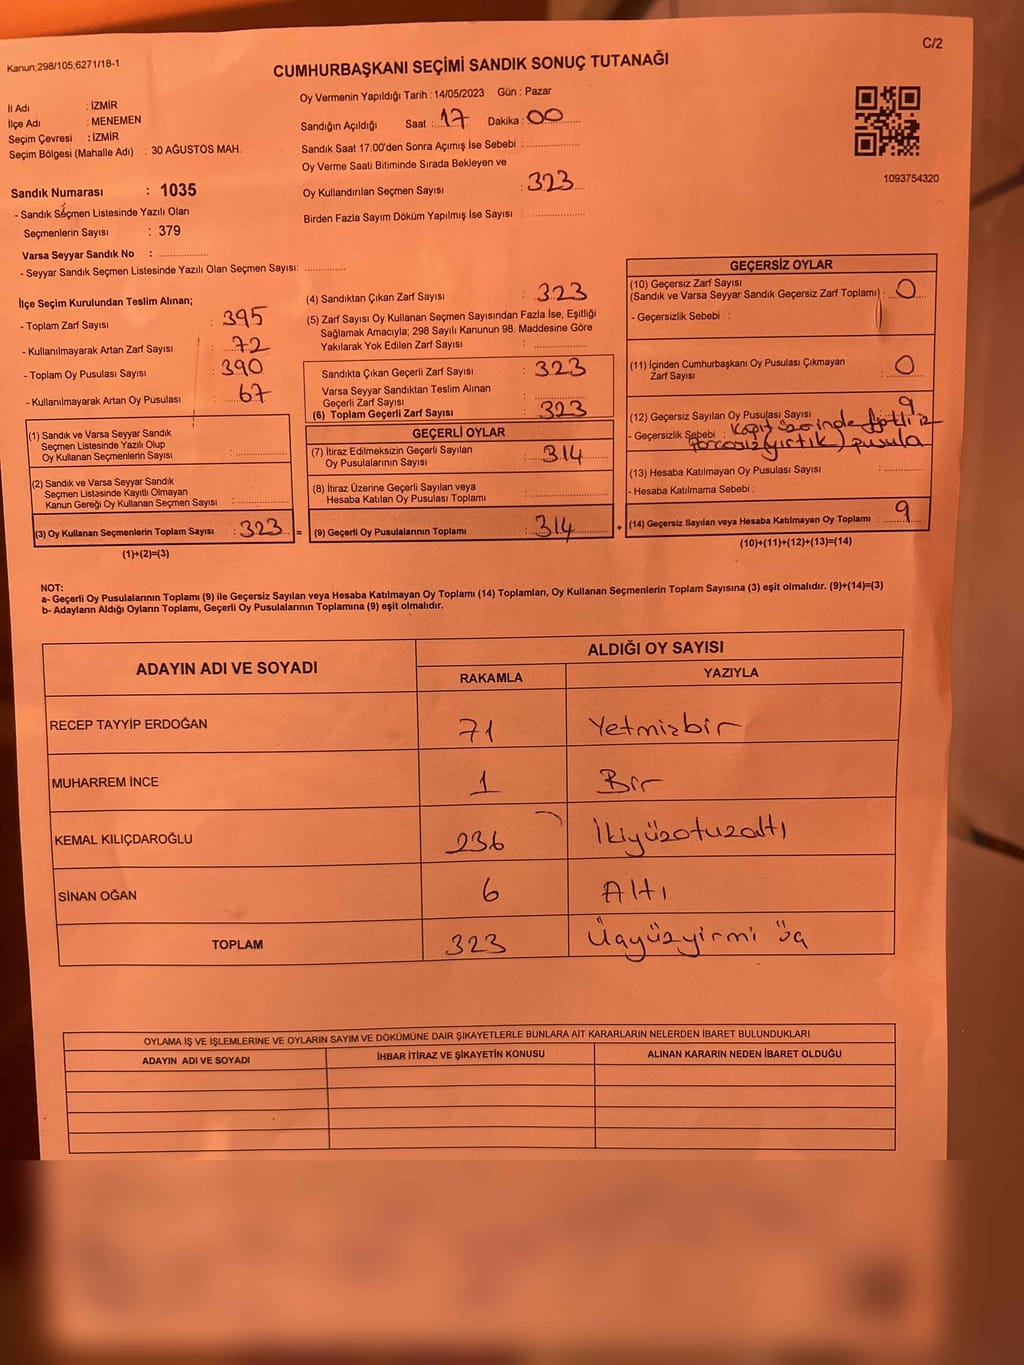 C/2
Kanun;298/105,6271/18-1
CUMHURBAŞKANI SEÇİMİ SANDIK SONUÇ TUTANAĞI
Oy Vermenin Yapıldığı Tarih : 14/05/2023 Gün : Pazar
İl Adı : İZMİR
İlçe Adı : MENEMEN
Seçim Çevresi : İZMİR
Seçim Bölgesi (Mahalle Adı) : 30 AĞUSTOS MAH.
Sandığın Açıldığı Saat : 17 Dakika : 00
Sandık Saat 17:00'den Sonra Açımış İse Sebebi :
Oy Verme Saati Bitiminde Sırada Bekleyen ve
Oy Kullandırılan Seçmen Sayısı : 323
Birden Fazla Sayım Döküm Yapılmış İse Sayısı :
1093754320
Sandık Numarası : 1035
- Sandık Seçmen Listesinde Yazılı Olan
Seçmenlerin Sayısı : 379
Varsa Seyyar Sandık No :
- Seyyar Sandık Seçmen Listesinde Yazılı Olan Seçmen Sayısı:
İlçe Seçim Kurulundan Teslim Alınan;
- Toplam Zarf Sayısı : 395
- Kullanılmayarak Artan Zarf Sayısı : 72
- Toplam Oy Pusulası Sayısı : 390
- Kullanılmayarak Artan Oy Pusulası : 67
(1) Sandık ve Varsa Seyyar Sandık
Seçmen Listesinde Yazılı Olup
Oy Kullanan Seçmenlerin Sayısı :
(2) Sandık ve Varsa Seyyar Sandık
Seçmen Listasinde Kayıtlı Olmayan
Kanun Gereği Oy Kullanan Seçmen Sayısı :
(3) Oy Kullanan Seçmenlerin Toplam Sayısı : 323 =
(1)+(2)=(3)
(4) Sandıktan Çıkan Zarf Sayısı : 323
(5) Zarf Sayısı Oy Kullanan Seçmen Sayısından Fazla İse, Eşitliği
Sağlamak Amacıyla; 298 Sayılı Kanunun 98. Maddesine Göre
Yakılarak Yok Edilen Zarf Sayısı :
Sandıkta Çıkan Geçerli Zarf Sayısı : 323
Varsa Seyyar Sandıktan Teslim Alınan
Geçerli Zarf Sayısı :
(6) Toplam Geçerli Zarf Sayısı : 323
GEÇERLİ OYLAR
(7) İtiraz Edilmeksizin Geçerli Sayılan
Oy Pusulalarının Sayısı : 314
(8) İtiraz Üzerine Geçerli Sayılan veya
Hesaba Katılan Oy Pusulası Toplamı :
(9) Geçerli Oy Pusulalarının Toplamı : 314 +
GEÇERSİZ OYLAR
(10) Geçersiz Zarf Sayısı
(Sandık ve Varsa Seyyar Sandık Geçersiz Zarf Toplamı) : 0
- Geçersizlik Sebebi :
(11) İçinden Cumhurbaşkanı Oy Pusulası Çıkmayan
Zarf Sayısı : 0
(12) Geçersiz Sayılan Oy Pusulası Sayısı : 9
- Geçersizlik Sebebi : üzerinde
(yırtık) pusula
(13) Hesaba Katılmayan Oy Pusulası Sayısı :
- Hesaba Katılmama Sebebi :
(14) Geçersiz Sayılan veya Hesaba Katılmayan Oy Toplamı : 9
(10)+(11)+(12)+(13)=(14)
NOT:
a- Geçerli Oy Pusulalarının Toplamı (9) ile Geçersiz Sayılan veya Hesaba Katılmayan Oy Toplamı (14) Toplamları, Oy Kullanan Seçmenlerin Toplam Sayısına (3) eşit olmalıdır. (9)+(14)=(3)
b- Adayların Aldığı Oyların Toplamı, Geçerli Oy Pusulalarının Toplamına (9) eşit olmalıdır.
ADAYIN ADI VE SOYADI ALDIĞI OY SAYISI
RAKAMLA YAZIYLA
RECEP TAYYİP ERDOĞAN 71 Yetmişbir
MUHARREM İNCE 1 Bir
KEMAL KILIÇDAROĞLU 236 İkiyüzotuzaltı
SİNAN OĞAN 6 Altı
TOPLAM 323 Üçyüzyirmi üç
OYLAMA İŞ VE İŞLEMLERİNE VE OYLARIN SAYIM VE DÖKÜMÜNE DAİR ŞİKAYETLERLE BUNLARA AİT KARARLARIN NELERDEN İBARET BULUNDUKLARI
ADAYIN ADI VE SOYADI İHBAR İTİRAZ VE ŞİKAYETİN KONUSU ALINAN KARARIN NEDEN İBARET OLDUĞU